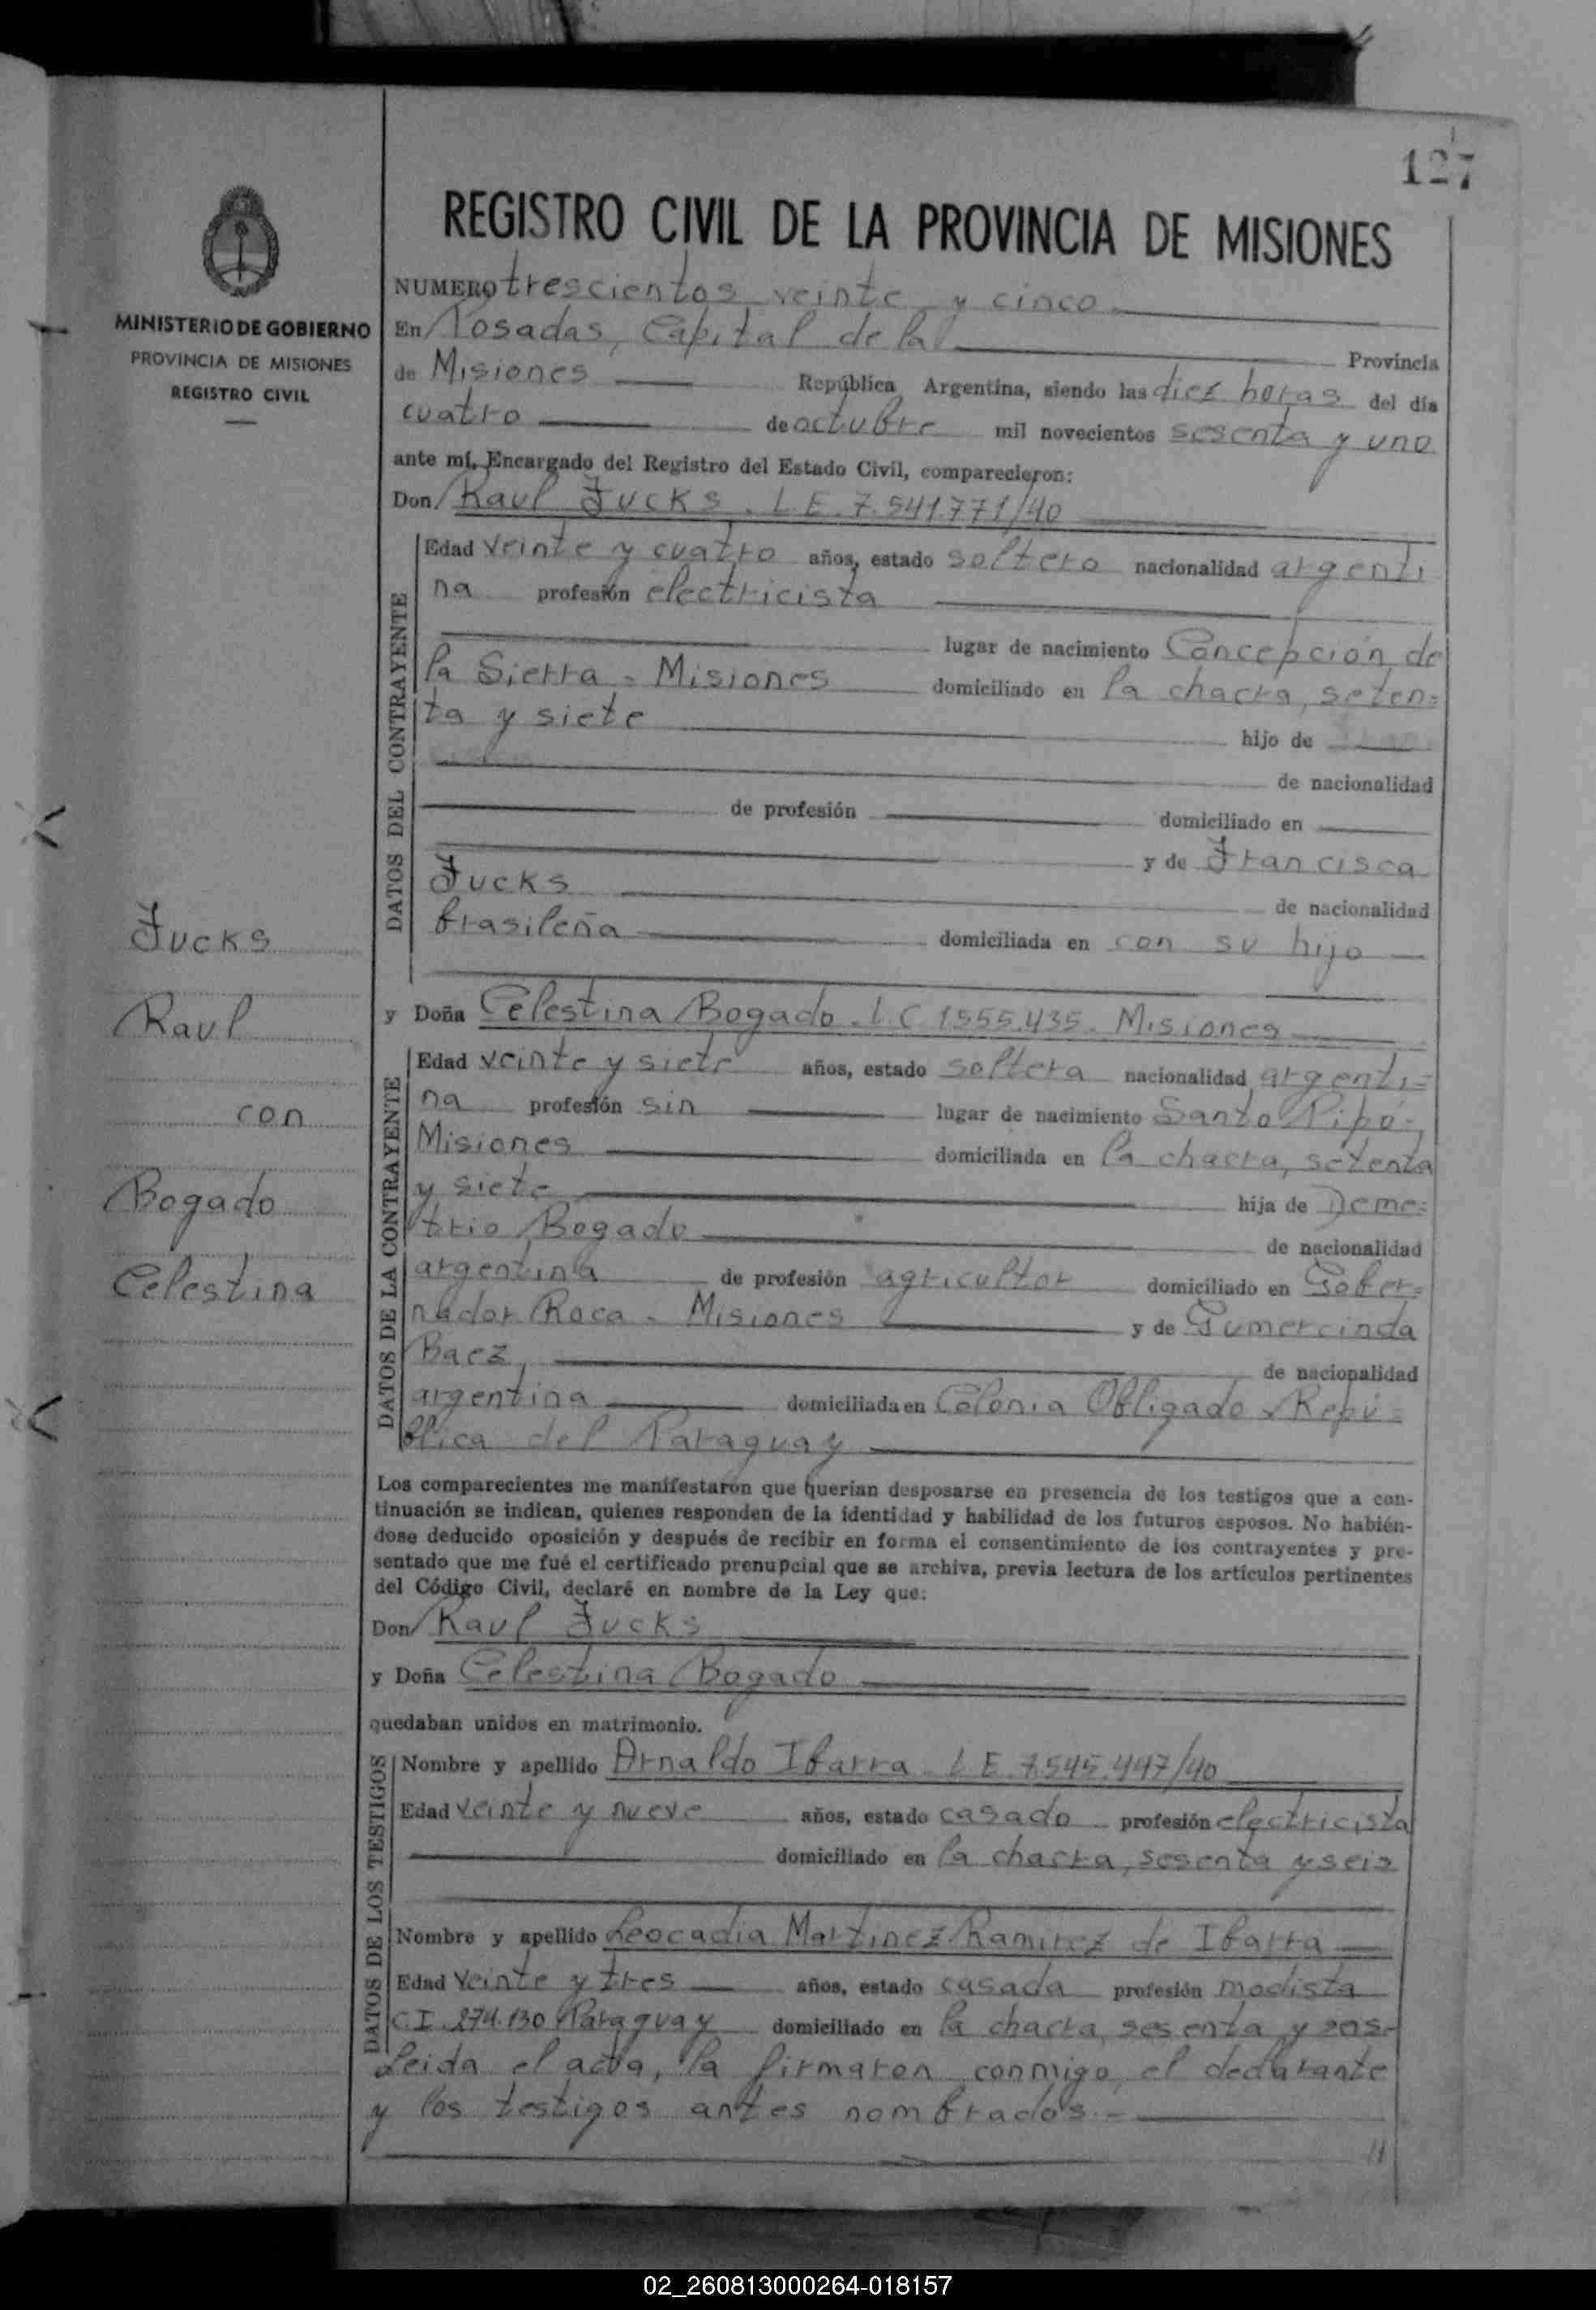 127
REGISTRO CIVIL DE LA PROVINCIA DE MISIONES
MINISTERIO DE GOBIERNO
PROVINCIA DE MISIONES
REGISTRO CIVIL
NUMERO trescientos veinte y cinco
En Posadas, Capital de la Provincia
de Misiones República Argentina, siendo las diez horas del día
cuatro de octubre mil novecientos sesenta y uno
ante mí, Encargado del Registro del Estado Civil, comparecieron:
Don Raul Fucks. L.E. 7.541.771/40
DATOS DEL CONTRAYENTE
Edad veinte y cuatro años, estado soltero nacionalidad argenti
na profesión electricista
lugar de nacimiento Concepción de
la Sierra - Misiones domiciliado en la chacra, seten=
ta y siete hijo de
de nacionalidad
de profesión domiciliado en
y de Francisca
Fucks de nacionalidad
brasileña domiciliada en con su hijo
y Doña Celestina Bogado. L.C 1555.435. Misiones
DATOS DE LA CONTRAYENTE
Edad veinte y siete años, estado soltera nacionalidad argenti=
na profesión sin lugar de nacimiento Santo Pipó-
Misiones domiciliada en la chacra, setenta
y siete hija de Deme=
trio Bogado de nacionalidad
argentina de profesión agricultor domiciliado en Gober=
nador Roca - Misiones y de Gumercinda
Baez, de nacionalidad
argentina domiciliada en Colonia Obligado. Repú=
blica del Paraguay
Los comparecientes me manifestaron que querían desposarse en presencia de los testigos que a con-
tinuación se indican, quienes responden de la identidad y habilidad de los futuros esposos. No habién-
dose deducido oposición y después de recibir en forma el consentimiento de los contrayentes y pre-
sentado que me fué el certificado prenupcial que se archiva, previa lectura de los artículos pertinentes
del Código Civil, declaré en nombre de la Ley que:
Don Raul Fucks
y Doña Celestina Bogado
quedaban unidos en matrimonio.
DATOS DE LOS TESTIGOS
Nombre y apellido Arnaldo Ibarra L.E. 7.545.447/40
Edad veinte y nueve años, estado casado profesión electricista
domiciliado en la chacra, sesenta y seis
Nombre y apellido Leocadia Martinez Ramirez de Ibarra
Edad veinte y tres años, estado casada profesión modista
C.I. 274.130 Paraguay domiciliado en la chacra, sesenta y seis-
Leida el acta, la firmaron conmigo, el declarante
y los testigos antes nombrados.-
Fucks
Raul
con
Bogado
Celestina
02_260813000264-018157